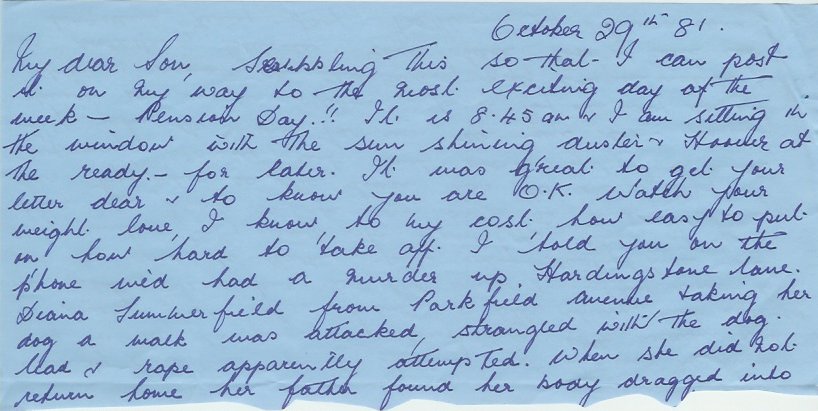 October 29th 81.
My dear Son, Scribbling This so that I can post
it on my way to the most exciting day of the
week – Pension Day.!! It is 8.45 am & I am sitting in
the window with the sun shining duster & Hoover at
the ready. – for later. It was great to get your
letter dear & to know you are O.K. Watch your
weight love, I know to my cost how easy to put
on how hard to take off. I told you on the
'phone we'd had a murder up Hardingstone lane.
Diana Summerfield from Parkfield Avenue taking her
dog a walk was attacked, strangled with the dog
lead & rape apparently attempted. When she did not
return home her father found her body dragged into